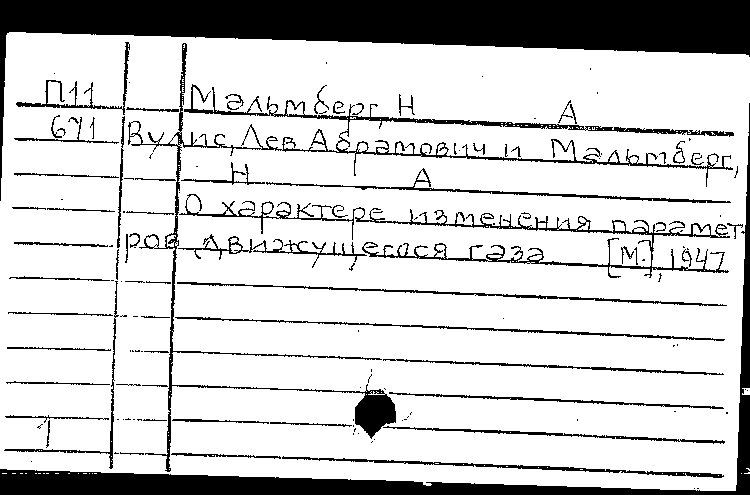 П11 Мальмберг, Н А
671 Вулис, Лев Абрамович и Мальмберг,
Н А
О характере изменения парамет-
ров движущегося газа [М.], 1947
1